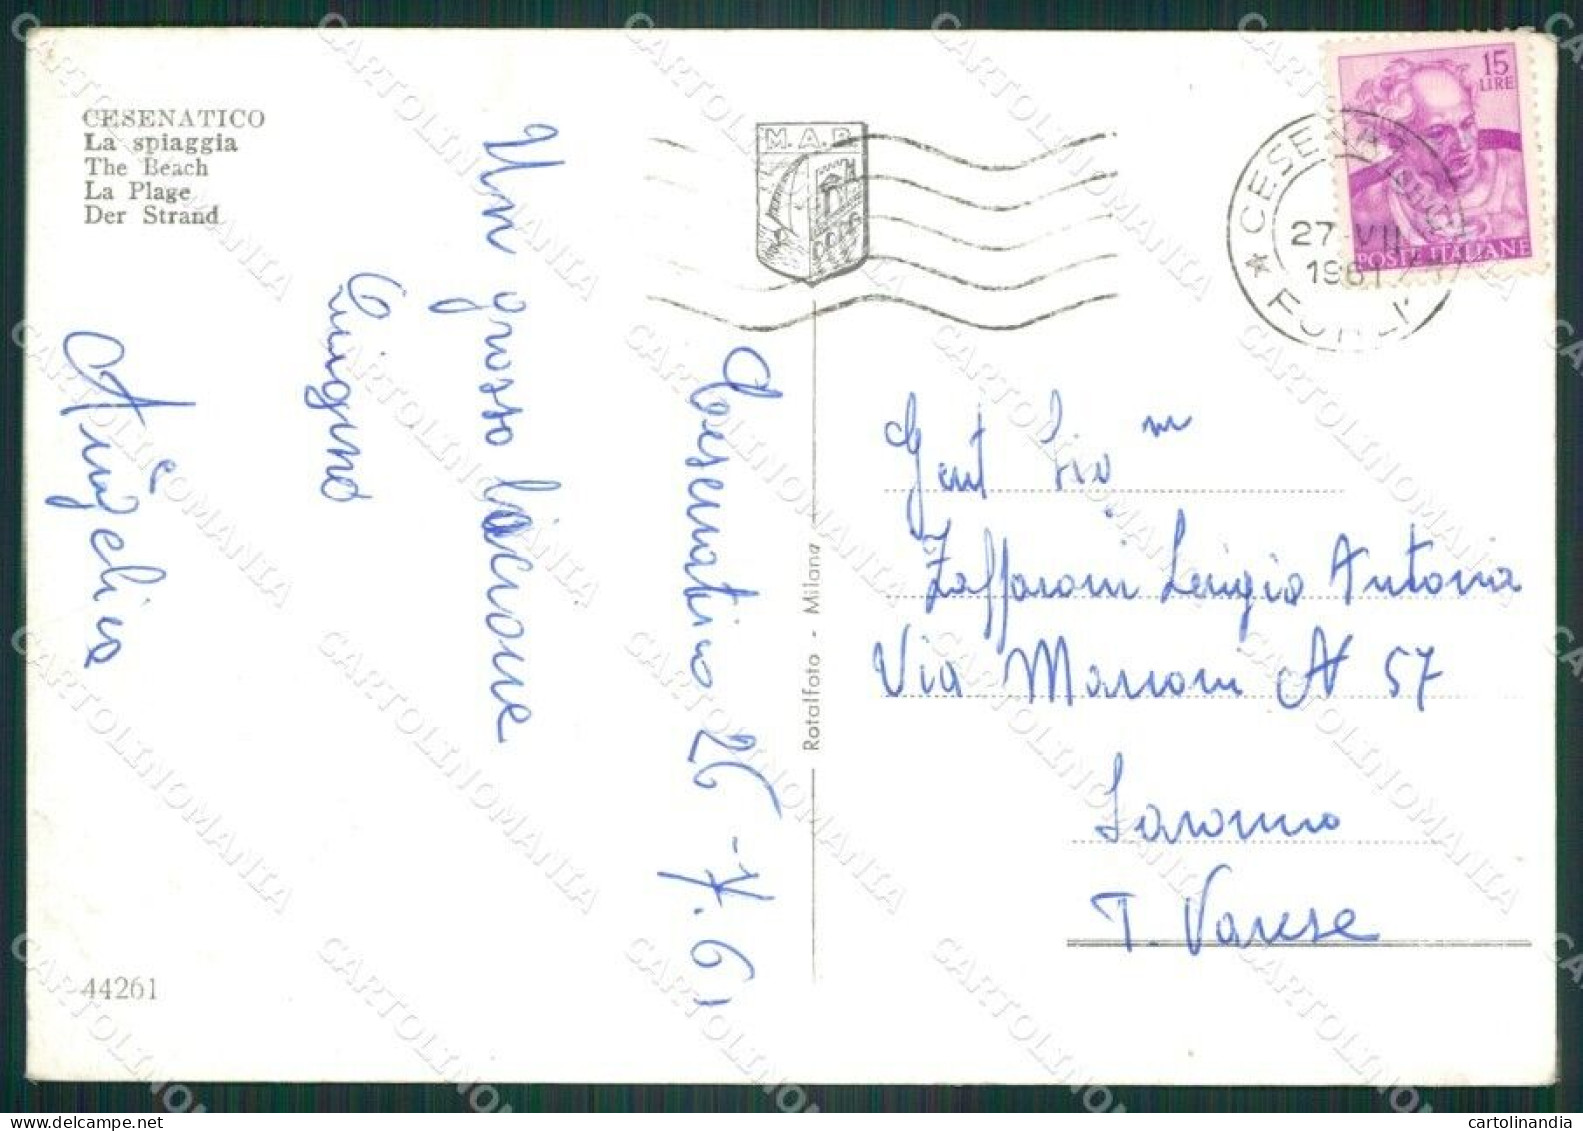 CESENATICO
La spiaggia
The Beach
La Plage
Der Strand
M.A.R.
15
LIRE
POSTE ITALIANE
27 VII
1961
FORLI'
Cesenatico 26-7.61
Un grosso bacione
Luigino
Angelica
Gent
Zaffaroni Luigio Antonia
Via Marconi N 57
Saronno
Varese
Rotalfoto - Milano
44261
CARTOLINOMANIA
cartolinandia